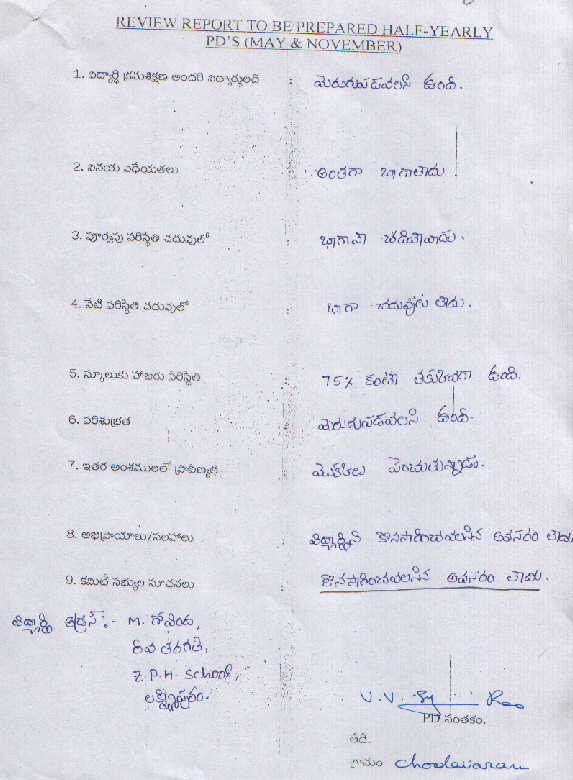 REVIEW REPORT TO BE PREPARED HALF-YEARLY
PD'S (MAY & NOVEMBER)
1. విద్యార్థి క్రమశిక్షణ అందరి : మెరుగుపడవలసి ఉంది.
2. వినయ విధేయతలు : అంతగా బాగాలేదు
3. పూర్వపు పరిస్థితి చదువులో : బాగానే చదివేవాడు.
4. నేటి పరిస్థితి చదువులో : బాగా చదువుట లేదు.
5. స్కూలుకు హాజరు పరిస్థితి : 75% కంటే తక్కువగా ఉంది.
6. పరిశుభ్రత : మెరుగుపడవలసి ఉంది.
7. ఇతర అంశములలో ప్రావీణ్యత : పెంచుతున్నాడు.
8. అభిప్రాయాలు/సలహాలు : కొనసాగించవలసిన అవసరం లేదు
9. కమిటీ సభ్యుల సూచనలు : కొనసాగించవలసిన అవసరం లేదు.
విద్యార్థి అడ్రస్ :- M. గోవింద,
9వ తరగతి,
Z.P.H. School,
లక్ష్మీపురం.
V.V. Rao
PD సంతకం.
తేది.
గ్రామం Chodavaram